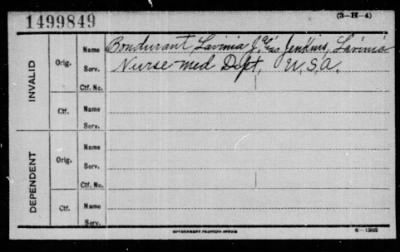 1499849 (3-H-4)
INVALID
Orig.
Name Bondurant, Lavinia J. Jenkins, Lavinia
Serv. Nurse Med Dept, U.S.A.
Ctf. No.
Ctf.
Name
Serv.
DEPENDENT
Orig.
Name
Serv.
Ctf. No.
Ctf.
Name
Serv.
GOVERNMENT PRINTING OFFICE